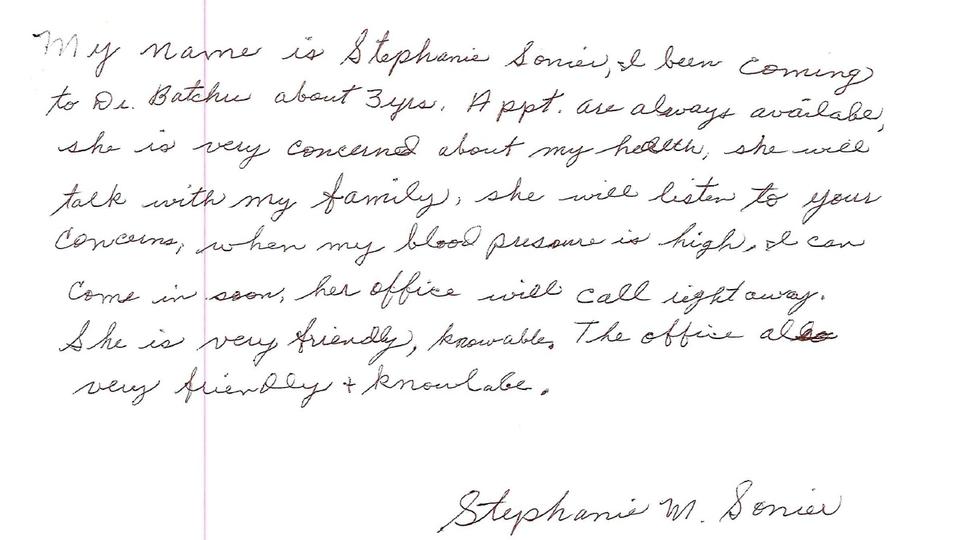 My name is Stephanie Sonier, I been coming
to Dr. Batchu about 3yrs. Appt. are always availabe,
she is very concerned about my health, she will
talk with my family, she will listen to your
concerns, when my blood pressure is high, I can
come in soon, her office will call right away.
She is very friendly, knowable. The office also
very friendly + knowlabe.
Stephanie M. Sonier